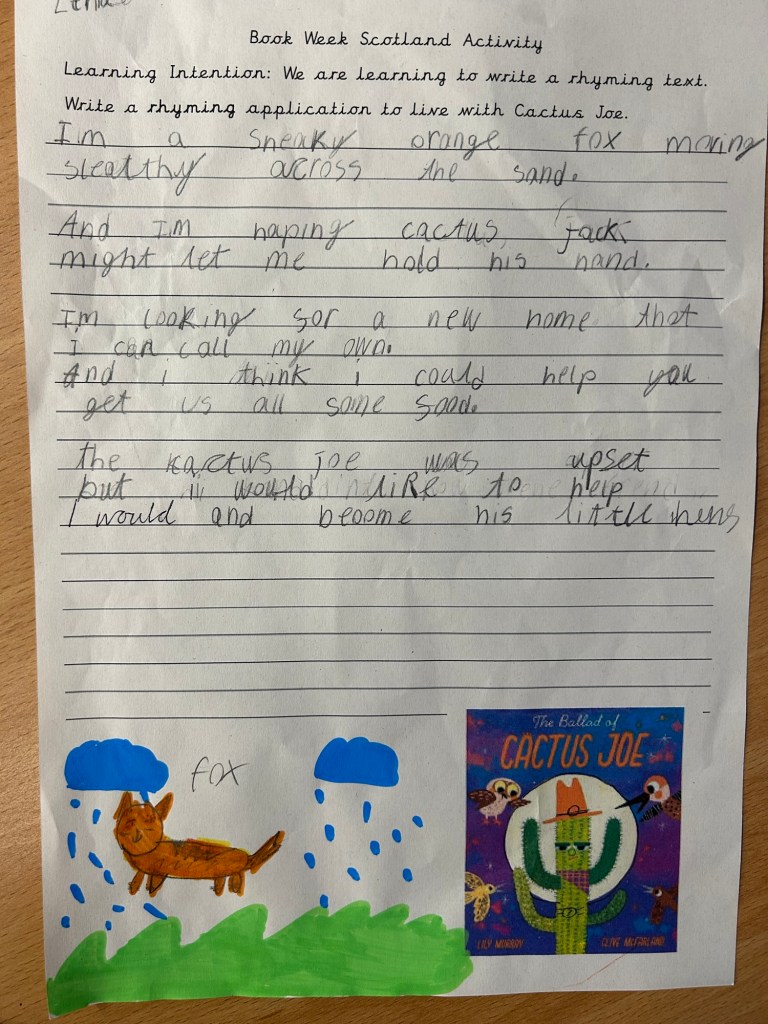 Book Week Scotland Activity
Learning Intention: We are learning to write a rhyming text.
Write a rhyming application to live with Cactus Joe.
I'm a sneaky orange fox moving
slealthy across the sand.
And I'm hoping cactus, jack
might let me hold his hand.
I'm looking for a new home that
I can call my own.
And i think i could help you
get us all some food.
the kactus joe was upset
but iii would like to help
I would and become his little
fox
The Ballad of
CACTUS JOE
LILY MURRAY
CLIVE MCFARLAND